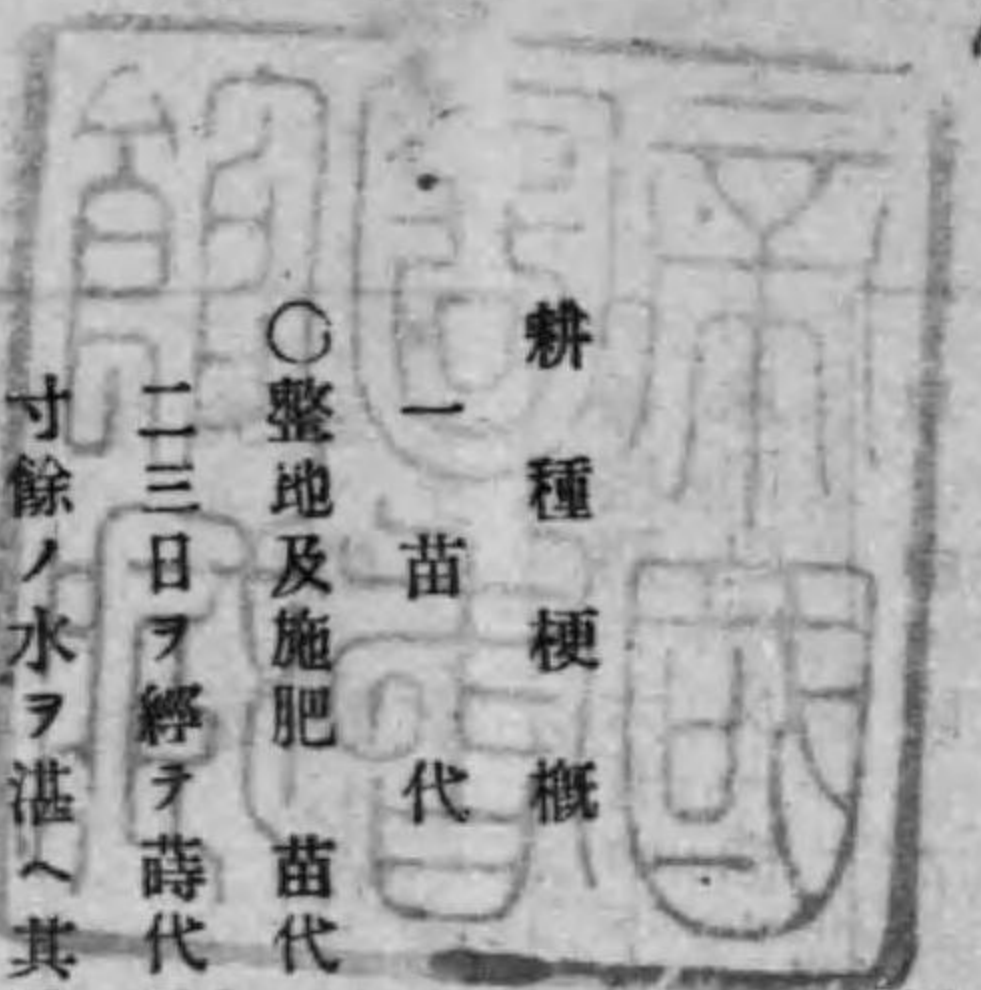 耕種梗概
一苗代
○整地及施肥　苗代
二三日ヲ經テ蒔代
寸餘ノ水ヲ湛ヘ其
帝國
圖書
館藏